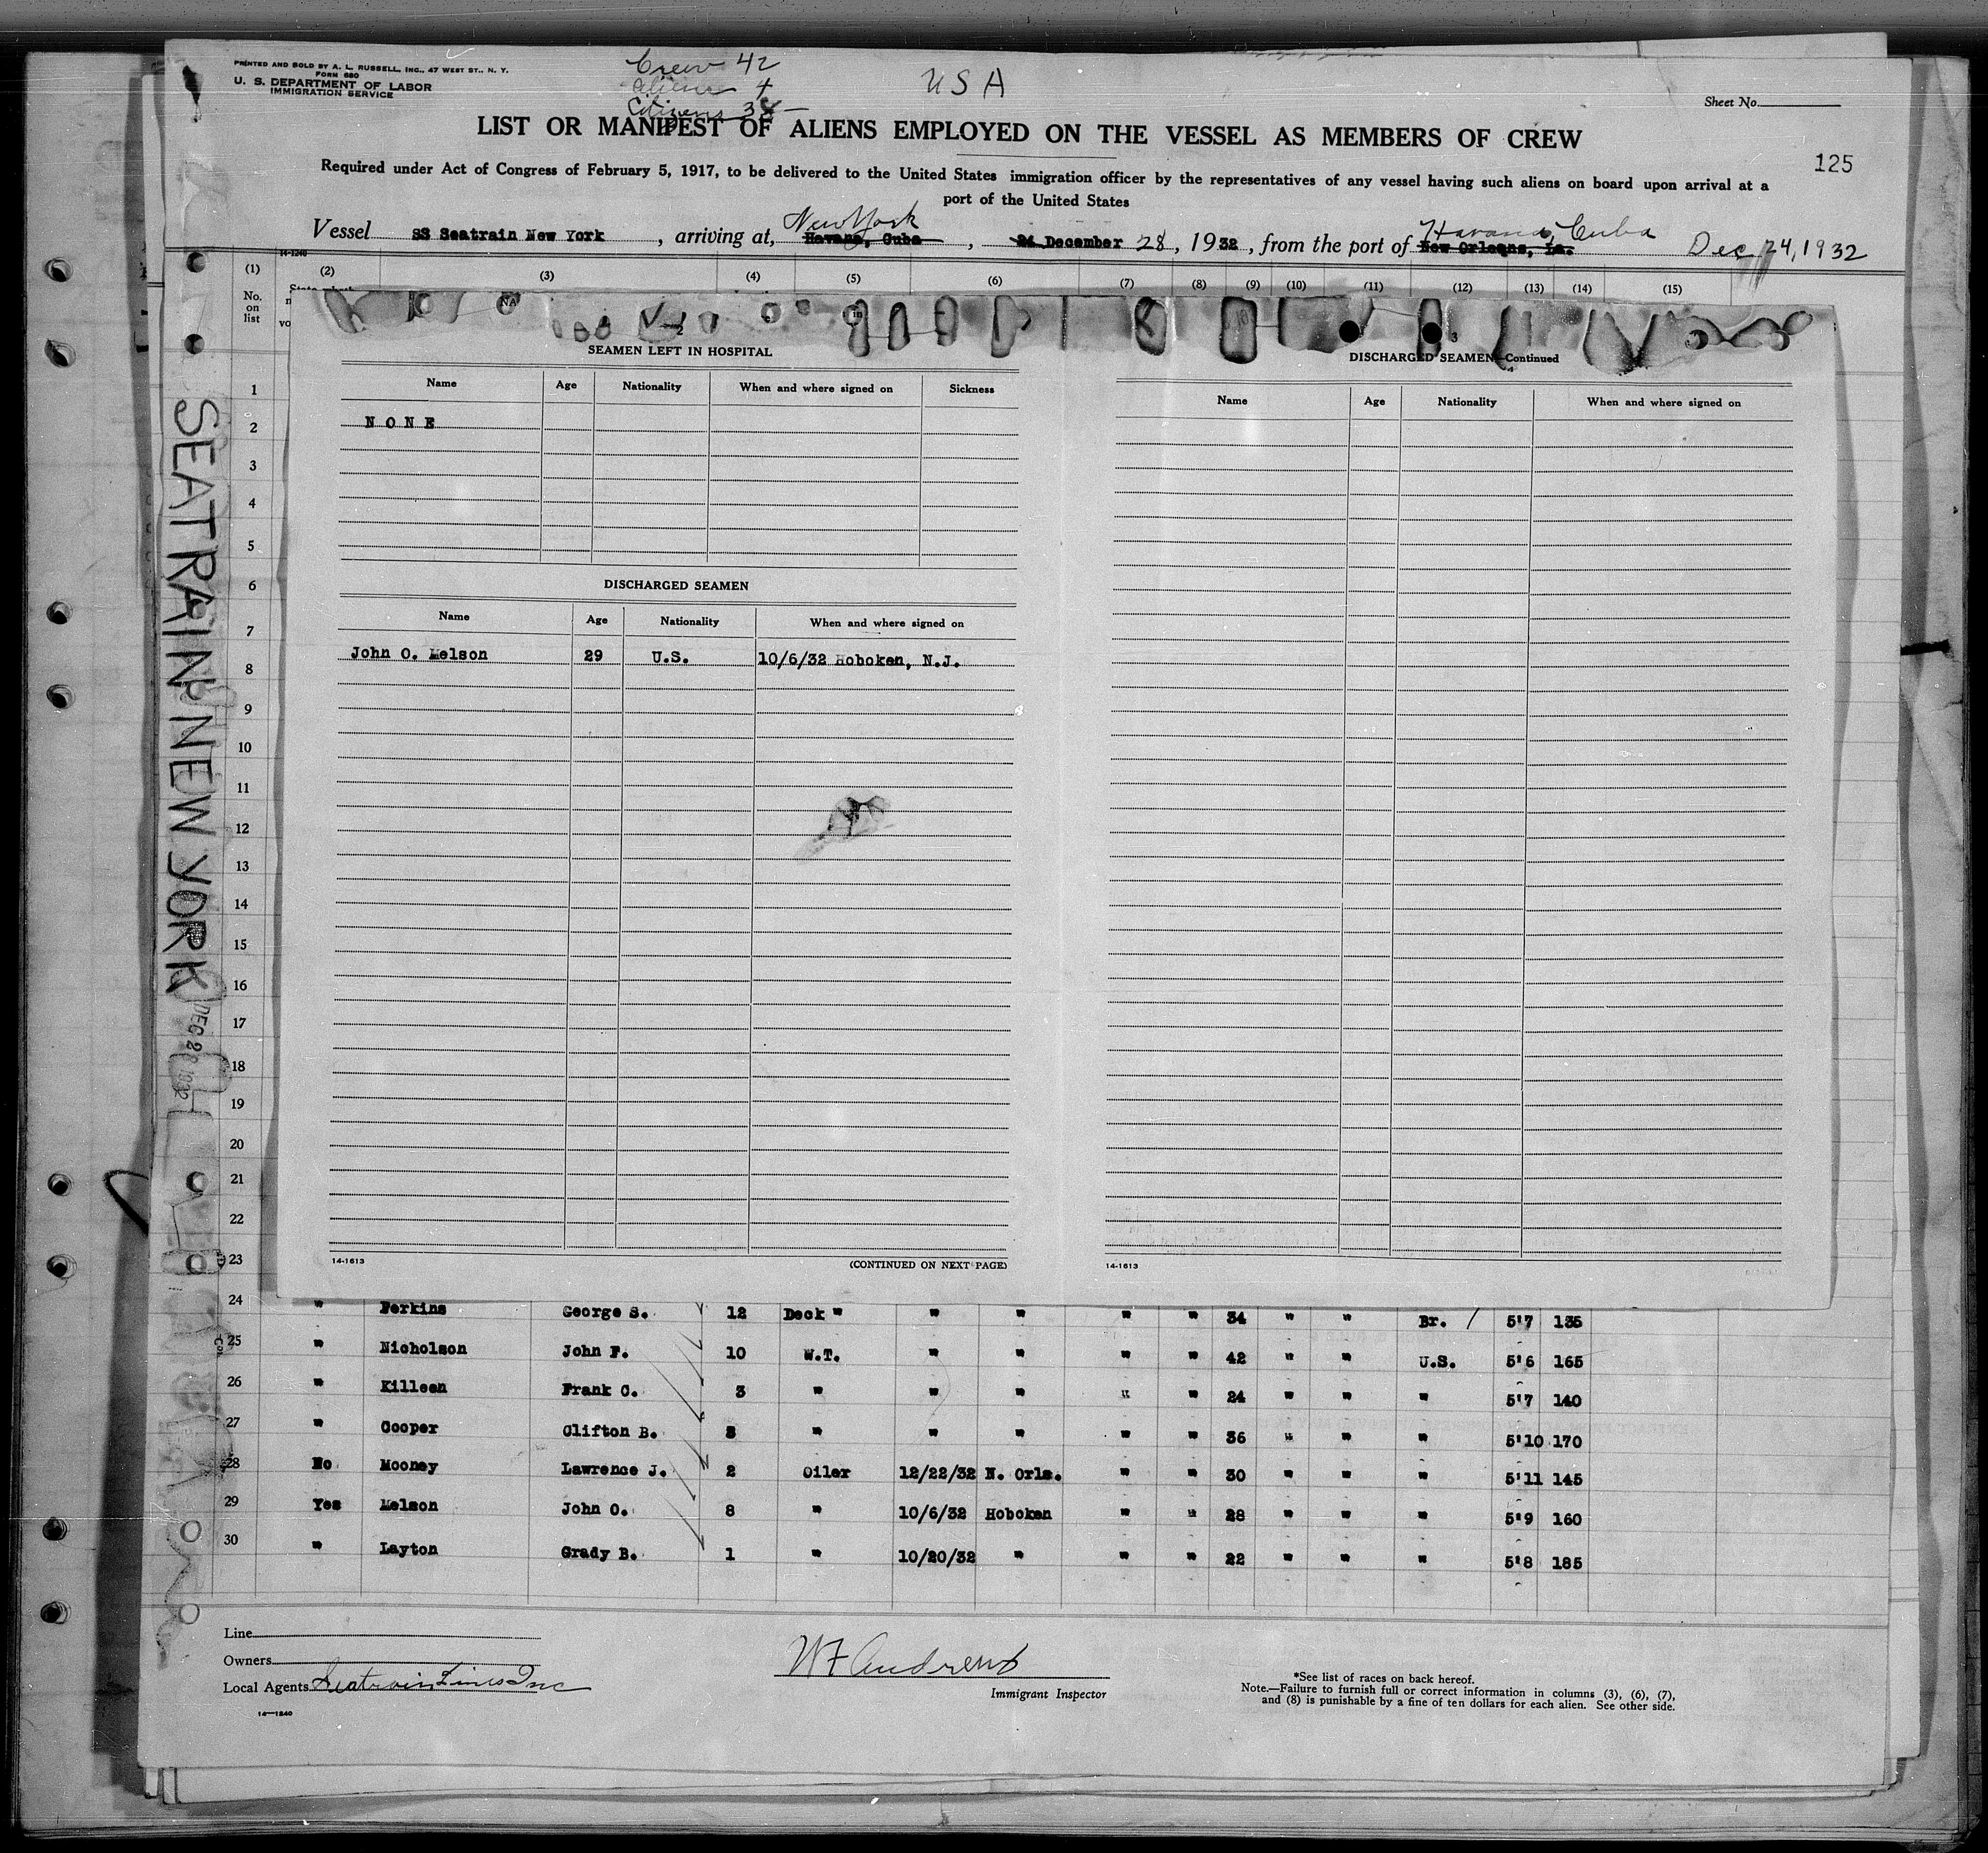 PRINTED AND SOLD BY A. L. RUSSELL, INC., 47 WEST ST., N. Y.
FORM 680
U. S. DEPARTMENT OF LABOR
IMMIGRATION SERVICE
Crew 42
aliens 4
Citizens 38
USA
Sheet No.
LIST OR MANIFEST OF ALIENS EMPLOYED ON THE VESSEL AS MEMBERS OF CREW
125
Required under Act of Congress of February 5, 1917, to be delivered to the United States immigration officer by the representatives of any vessel having such aliens on board upon arrival at a
port of the United States
New York Havana, Cuba
Vessel SS Seatrain New York, arriving at, Havana, Cuba, 24 December 28, 1932, from the port of New Orleans, La. Dec 24, 1932
14-1240
(1) (2) (3) (4) (5) (6) (7) (8) (9) (10) (11) (12) (13) (14) (15)
No. on list
SEATRAIN NEW YORK
DEC 28 1932
1
2
3
4
5
6
7
8
9
10
11
12
13
14
15
16
17
18
19
20
21
22
23
2
SEAMEN LEFT IN HOSPITAL
Name Age Nationality When and where signed on Sickness
NONE
DISCHARGED SEAMEN
Name Age Nationality When and where signed on
John O. Melson 29 U.S. 10/6/32 Hoboken, N.J.
14-1613 (CONTINUED ON NEXT PAGE)
3
DISCHARGED SEAMEN—Continued
Name Age Nationality When and where signed on
14-1613
24 " Perkins George S. 12 Deck " " " " " 34 " " Br. 5'7 135
25 " Nicholson John F. 10 W.T. " " " " 42 " " U.S. 5'6 165
26 " Killeen Frank C. 3 " " " " " 24 " " " 5'7 140
27 " Cooper Clifton B. 3 " " " " " 36 " " " 5'10 170
28 No Mooney Lawrence J. 2 Oiler 12/22/32 N. Orls. " " 30 " " " 5'11 145
29 Yes Melson John O. 8 " 10/6/32 Hoboken " " 28 " " " 5'9 160
30 " Layton Grady B. 1 " 10/20/32 " " " 22 " " " 5'8 185
Line
Owners
Local Agents Seatrain Lines Inc
14—1240
WF Andrews
Immigrant Inspector
*See list of races on back hereof.
Note.—Failure to furnish full or correct information in columns (3), (6), (7),
and (8) is punishable by a fine of ten dollars for each alien. See other side.